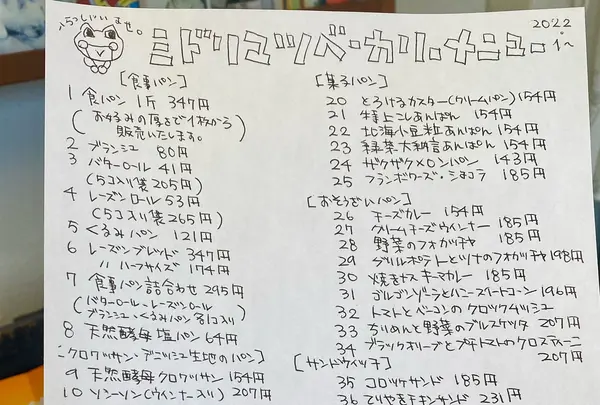 いらっしゃいませ。
ミドリマツベーカリーメニュー。
2022
1~
[食事パン]
1 食パン 1斤 347円
(お好みの厚さで1枚から
販売いたします。)
2 ブランジュ 80円
3 バターロール 41円
(5コ入り袋 205円)
4 レーズンロール 53円
(5コ入り袋 265円)
5 くるみパン 121円
6 レーズンブレッド 347円
〃 ハーフサイズ 174円
7 食事パン詰合わせ 295円
(バターロール・レーズンロール
ブランジュ・くるみパン各1コ入り)
8 天然酵母 塩パン 64円
[クロワッサン・デニッシュ生地のパン]
9 天然酵母クロワッサン 154円
10 ソンソン(ウインナー入り) 207円
[菓子パン]
20 とろけるカスター(クリームパン) 154円
21 特上こしあんぱん 154円
22 北海小豆粒あんぱん 154円
23 緑菜大納言あんぱん 154円
24 ザクザクメロンパン 143円
25 フランボワーズ・ショコラ 185円
[おそうざいパン]
26 チーズカレー 154円
27 クリームチーズウインナー 185円
28 野菜のフォカッチャ 185円
29 ポテトとツナのフォカッチャ 198円
30 焼きナスキーマカレー 185円
31 ゴルゴンゾーラとハニースイートコーン 196円
32 トマトとベーコンのクロックムッシュ
33 ちりめんと野菜のブルスケッタ 207円
34 ブラックオリーブとプチトマトのクロスティーニ
207円
[サンドウィッチ]
35 コロッケサンド 185円
36 てりやきチキンサンド 231円